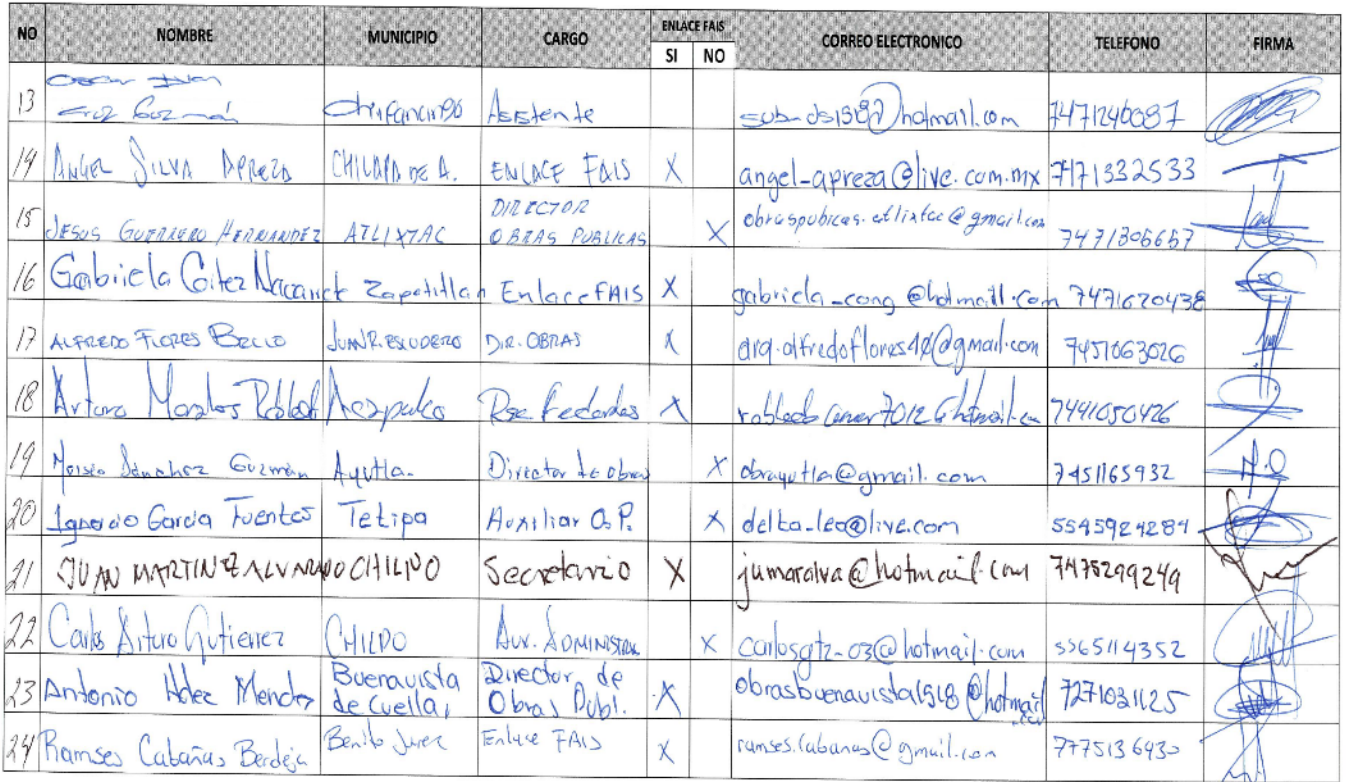 NO NOMBRE MUNICIPIO CARGO ENLACE FAIS SI NO CORREO ELECTRONICO TELEFONO FIRMA
Oscar Ivan
13 Cruz Guzmán Asistente 7471246087
14 ANGEL SILVA APREZA CHILAPA DE A. ENLACE FAIS X angel_apreza@live.com.mx 7171332533
DIRECTOR
15 JESUS GUERRERO HERNANDEZ ATLIXTAC OBRAS PUBLICAS X obraspubicas.atlixtac@gmail.com 7471306667
16 Gabriela Zapotitlan Enlace FAIS X gabriela_cong@hotmail.com 7471620438
17 ALFREDO FLORES BELLO JUAN R. ESCUDERO DIR. OBRAS X arq.alfredoflores10@gmail.com 7451063026
18 Arturo Morales Acapulco X 7441050426
19 Moises Sanchez Guzmán Ayutla. Director de obras X obrayutla@gmail.com 7451165932
20 Ignacio Garcia Fuentes Tetipa Auxiliar O.P. X delta-leo@live.com 5545924284
21 JUAN MARTINEZ ALVARADO CHILPO Secretario X jumaralva@hotmail.com 7475299249
22 Carlos Arturo Gutierrez CHILPO AUX. ADMINISTRA X carlosgtz-03@hotmail.com 5565114352
Buenavista Director de
23 Antonio Mendez de Cuellar Obras Publ. X obrasbuenavista1518@hotmail.com 7271031125
24 Ramses Cabañas Berdeja Benito Jurez Enlace FAIS X ramses.cabanas@gmail.com